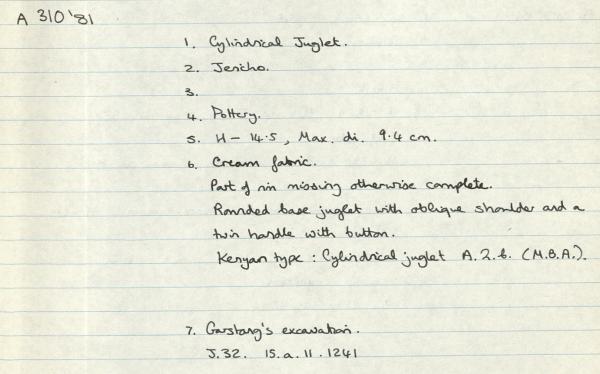 A 310'81
1. Cylindrical Juglet.
2. Jericho.
3.
4. Pottery.
5. H - 14.5, Max. di. 9.4 cm.
6. Cream fabric.
Part of rim missing otherwise complete.
Rounded base juglet with oblique shoulder and a
twin handle with button.
Kenyan type : Cylindrical juglet A.2.b. (M.B.A.).
7. Garstang's excavation.
J.32. 15.a.11.1241